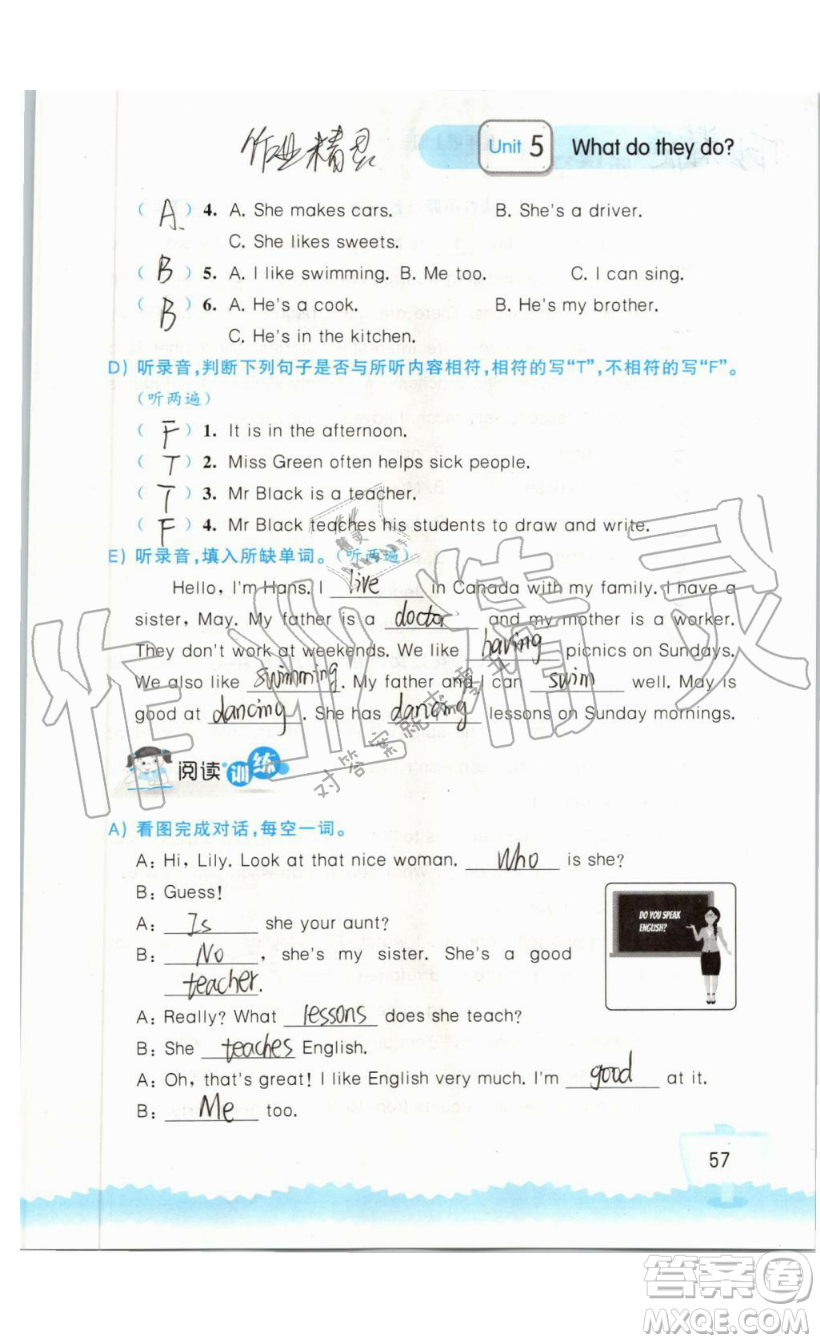 作业精灵
Unit 5 What do they do?
( A ) 4. A. She makes cars. B. She's a driver.
C. She likes sweets.
( B ) 5. A. I like swimming. B. Me too. C. I can sing.
( B ) 6. A. He's a cook. B. He's my brother.
C. He's in the kitchen.
D) 听录音,判断下列句子是否与所听内容相符,相符的写“T”,不相符的写“F”。
(听两遍)
( F ) 1. It is in the afternoon.
( T ) 2. Miss Green often helps sick people.
( T ) 3. Mr Black is a teacher.
( F ) 4. Mr Black teaches his students to draw and write.
E) 听录音,填入所缺单词。(听两遍)
Hello, I'm Hans. I live in Canada with my family. I have a
sister, May. My father is a doctor and my mother is a worker.
They don't work at weekends. We like having picnics on Sundays.
We also like swimming. My father and I can swim well. May is
good at dancing. She has dancing lessons on Sunday mornings.
作业精灵
对答案就求精灵
阅读训练
A) 看图完成对话,每空一词。
A: Hi, Lily. Look at that nice woman. Who is she?
B: Guess!
A: Is she your aunt?
B: No, she's my sister. She's a good
teacher.
DO YOU SPEAK
ENGLISH?
A: Really? What lessons does she teach?
B: She teaches English.
A: Oh, that's great! I like English very much. I'm good at it.
B: Me too.
57
答案卷
MXQE.COM